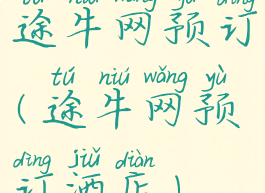 途牛网预订
tú niú wǎng yù
(途牛网预
dìng jiǔ diàn
订酒店)